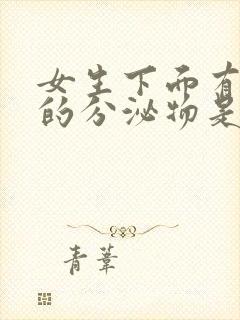 女生下面有
的分泌物是
青葦